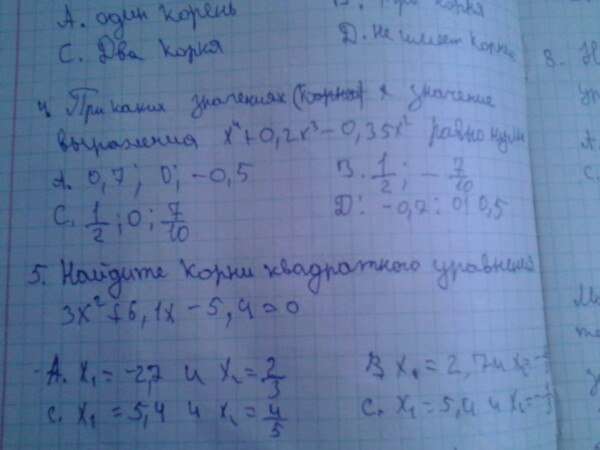 А. один корень
С. Два корня
D. не имеет корней
4. При каких значениях (корнях) х значение
выражения x⁴+0,2x³−0,35x² равно нулю
А. 0,7; 0; −0,5
В. 1/2; −7/10
С. 1/2; 0; 7/10
D. −0,7; 0; 0,5
5. Найдите корни квадратного уравнения
3x²+6,1x−5,4=0
А. x₁=−2,7 и x₂=2/3
В x₁=2,7 и x₂=−
С. x₁=5,4 и x₂=4/5
С. x₁=5,4 и x₂=−
8.
А.
С.